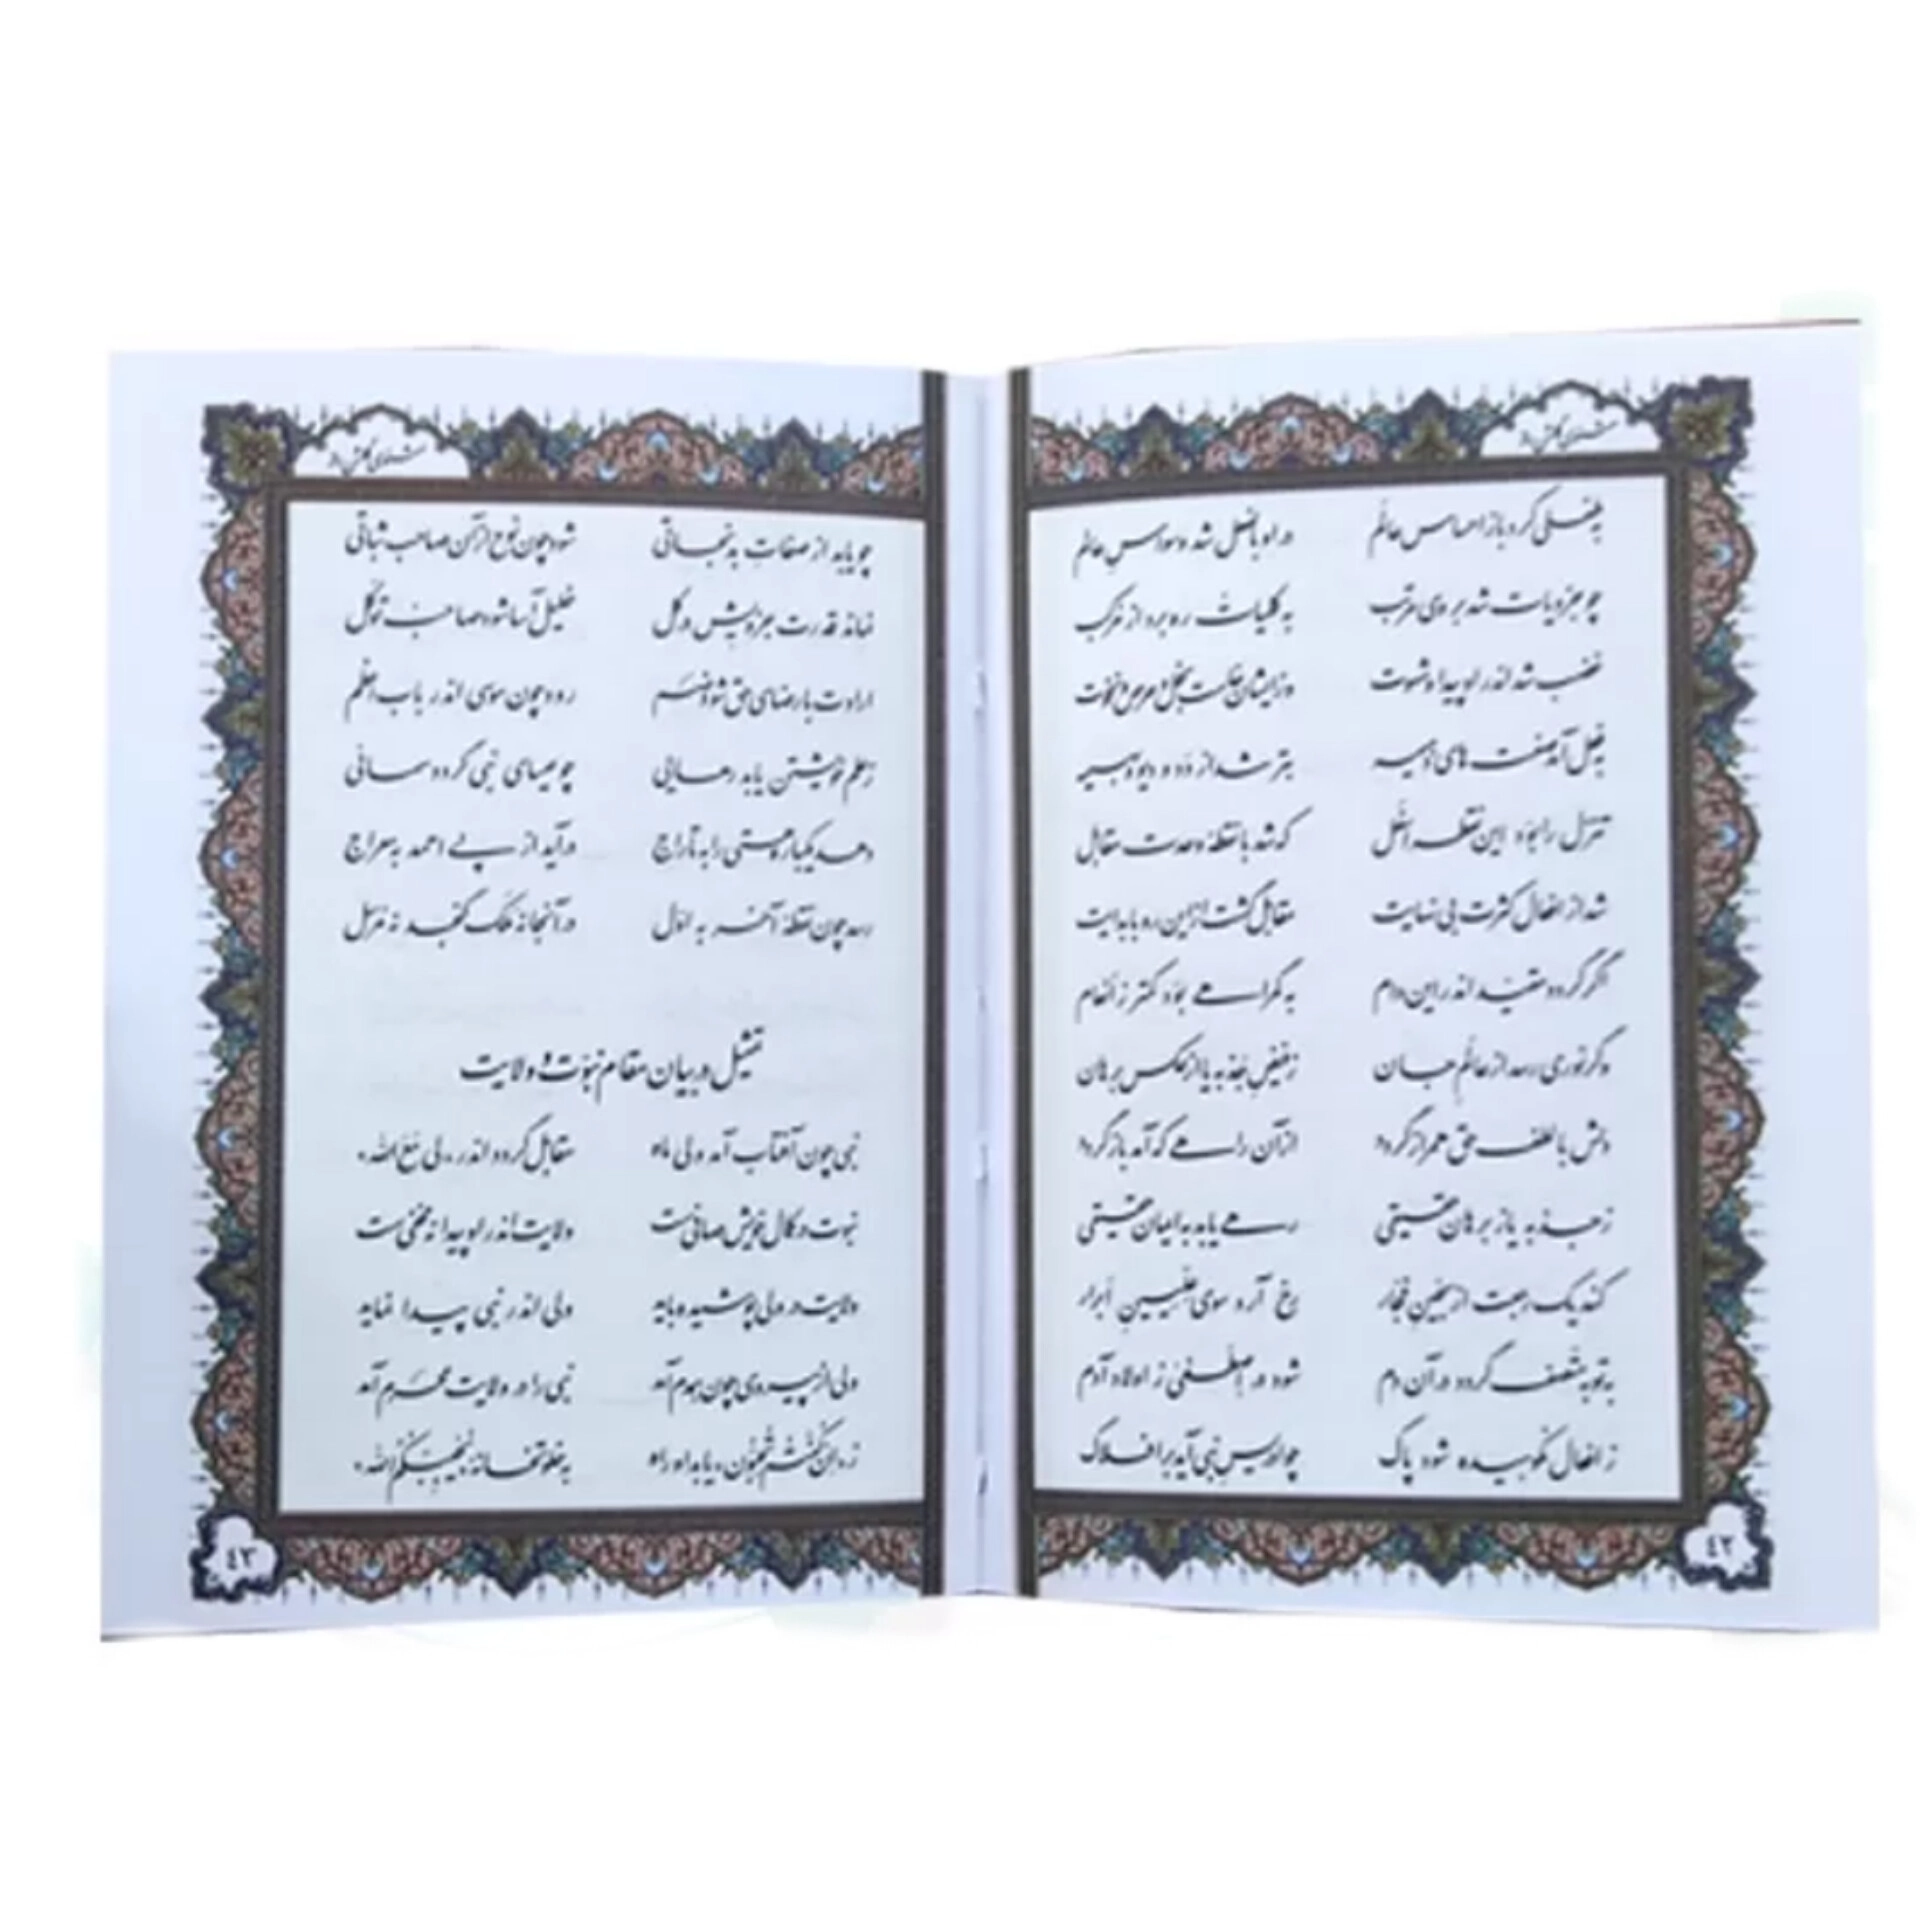 مثنوی گلشن راز
به طفلی کرد باز احساس عالم در او بالفعل شد وسواس عالم
چو جزویات شد بر وی مرتب به کلیات ره برد از مرکب
غضب شد اندر او پیدا و شهوت وز ایشان خاست بخل و حرص و نخوت
به فعل آمد صفت‌های ذمیمه بتر شد از دد و دیو و بهیمه
تنزل را بود این نقطه اسفل که شد با نقطهٔ وحدت مقابل
شد از افعال کثرت بی نهایت مقابل گشت از این رو با بدایت
اگر گردد مقید اندر این دام به گمراهی بود کمتر ز انعام
وگر نوری رسد از عالم جان ز فیض جذبه یا از عکس برهان
دلش با لطف حق همراز گردد از آن راهی که آمد باز گردد
ز جذبه یا ز برهان حقیقی رهی یابد به ایمان حقیقی
کند یک رجعت از سجین فجار رخ آرد سوی علیین ابرار
به توبه متصف گردد در آن دم شود در اصطفی ز اولاد آدم
ز افعال نکوهیده شود پاک چو ادریس نبی آید بر افلاک
٤٢
مثنوی گلشن راز
چو یابد از صفات بد نجاتی شود چون نوح از آن صاحب ثباتی
نماند قدرت جزویش در کل خلیل آسا شود صاحب توکل
ارادت با رضای حق شود ضم رود چون موسی اندر باب اعظم
ز علم خویشتن یابد رهایی چو عیسای نبی گردد سمائی
دهد یکباره هستی را به تاراج درآید از پی احمد به معراج
رسد چون نقطهٔ آخر به اول در آنجا نه ملک گنجد نه مرسل
تمثیل در بیان مقام نبوت و ولایت
نبی چون آفتاب آمد ولی ماه مقابل گردد اندر «لی مع الله»
نبوت در کمال خویش صافی است ولایت اندر او پیدا نه مخفی است
ولایت در ولی پوشیده باید ولی اندر نبی پیدا نماید
ولی از پیروی چون همدم آمد نبی را در ولایت محرم آمد
ز «ان کنتم تحبون» یابد او راه به خلوتخانهٔ «یحببکم الله»
٤٣